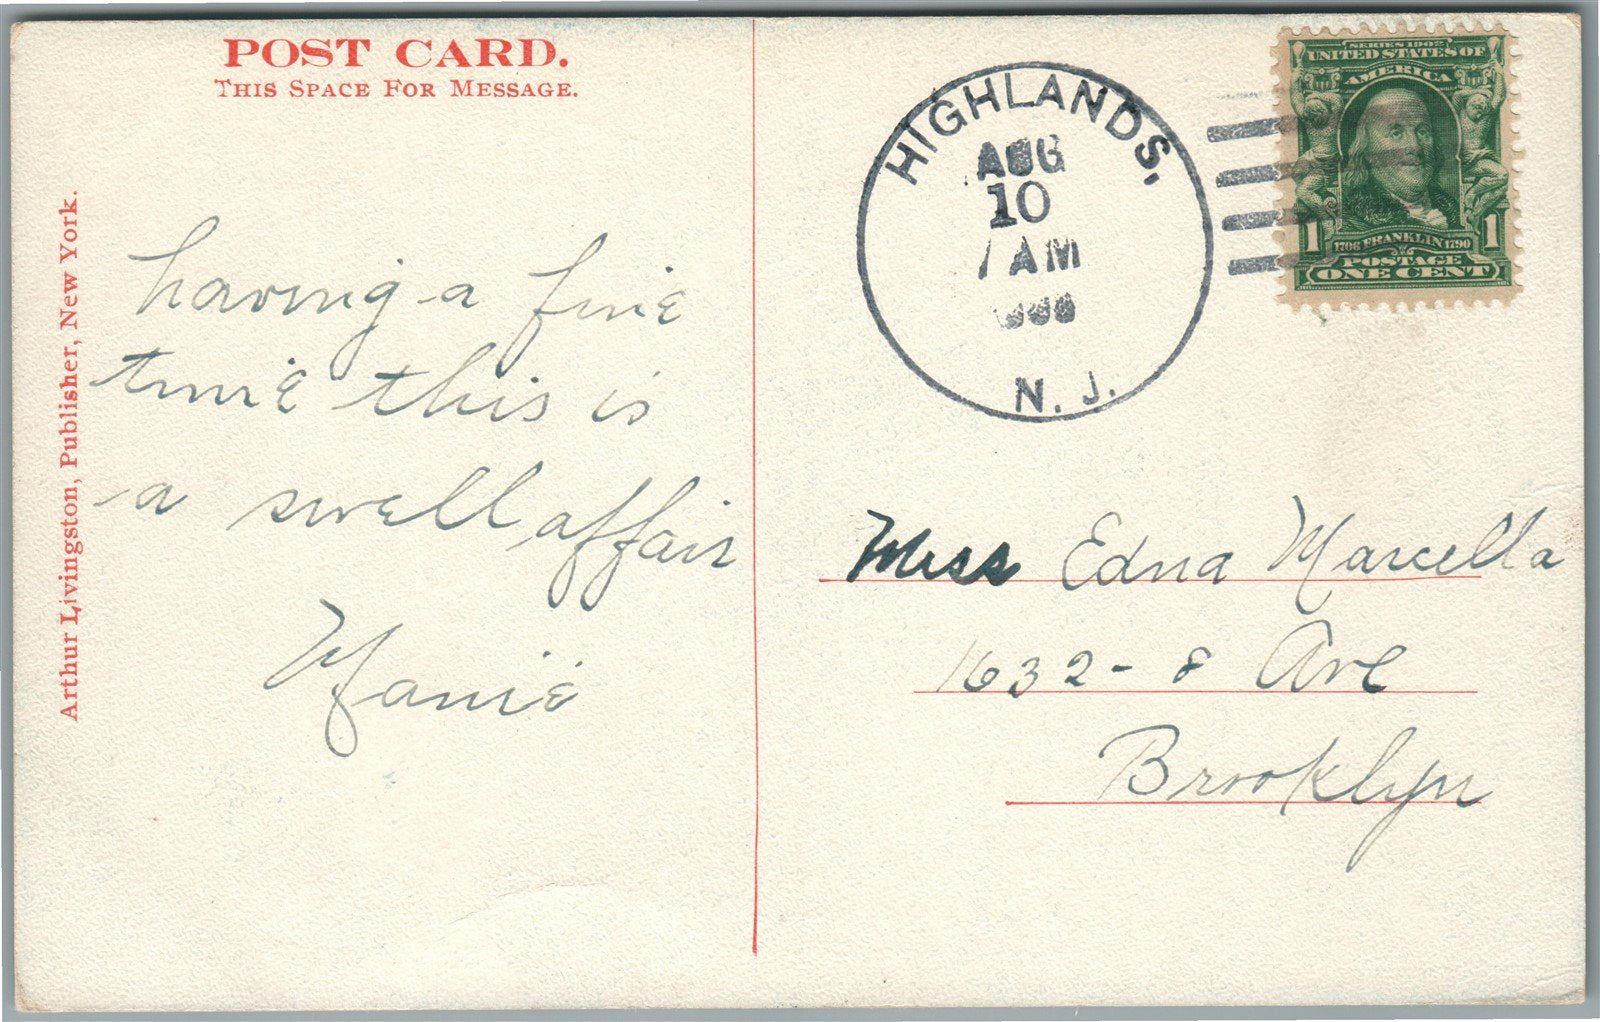 POST CARD.
THIS SPACE FOR MESSAGE.
Arthur Livingston, Publisher, New York.
having a fine
time this is
a swell affair
HIGHLANDS,
AUG
10
AM
N. J.
SERIES 1902
UNITED STATES OF
AMERICA
1 1
1706 FRANKLIN 1790
POSTAGE
ONE CENT
Miss Edna Marcella
1632 - 8 Ave
Brooklyn